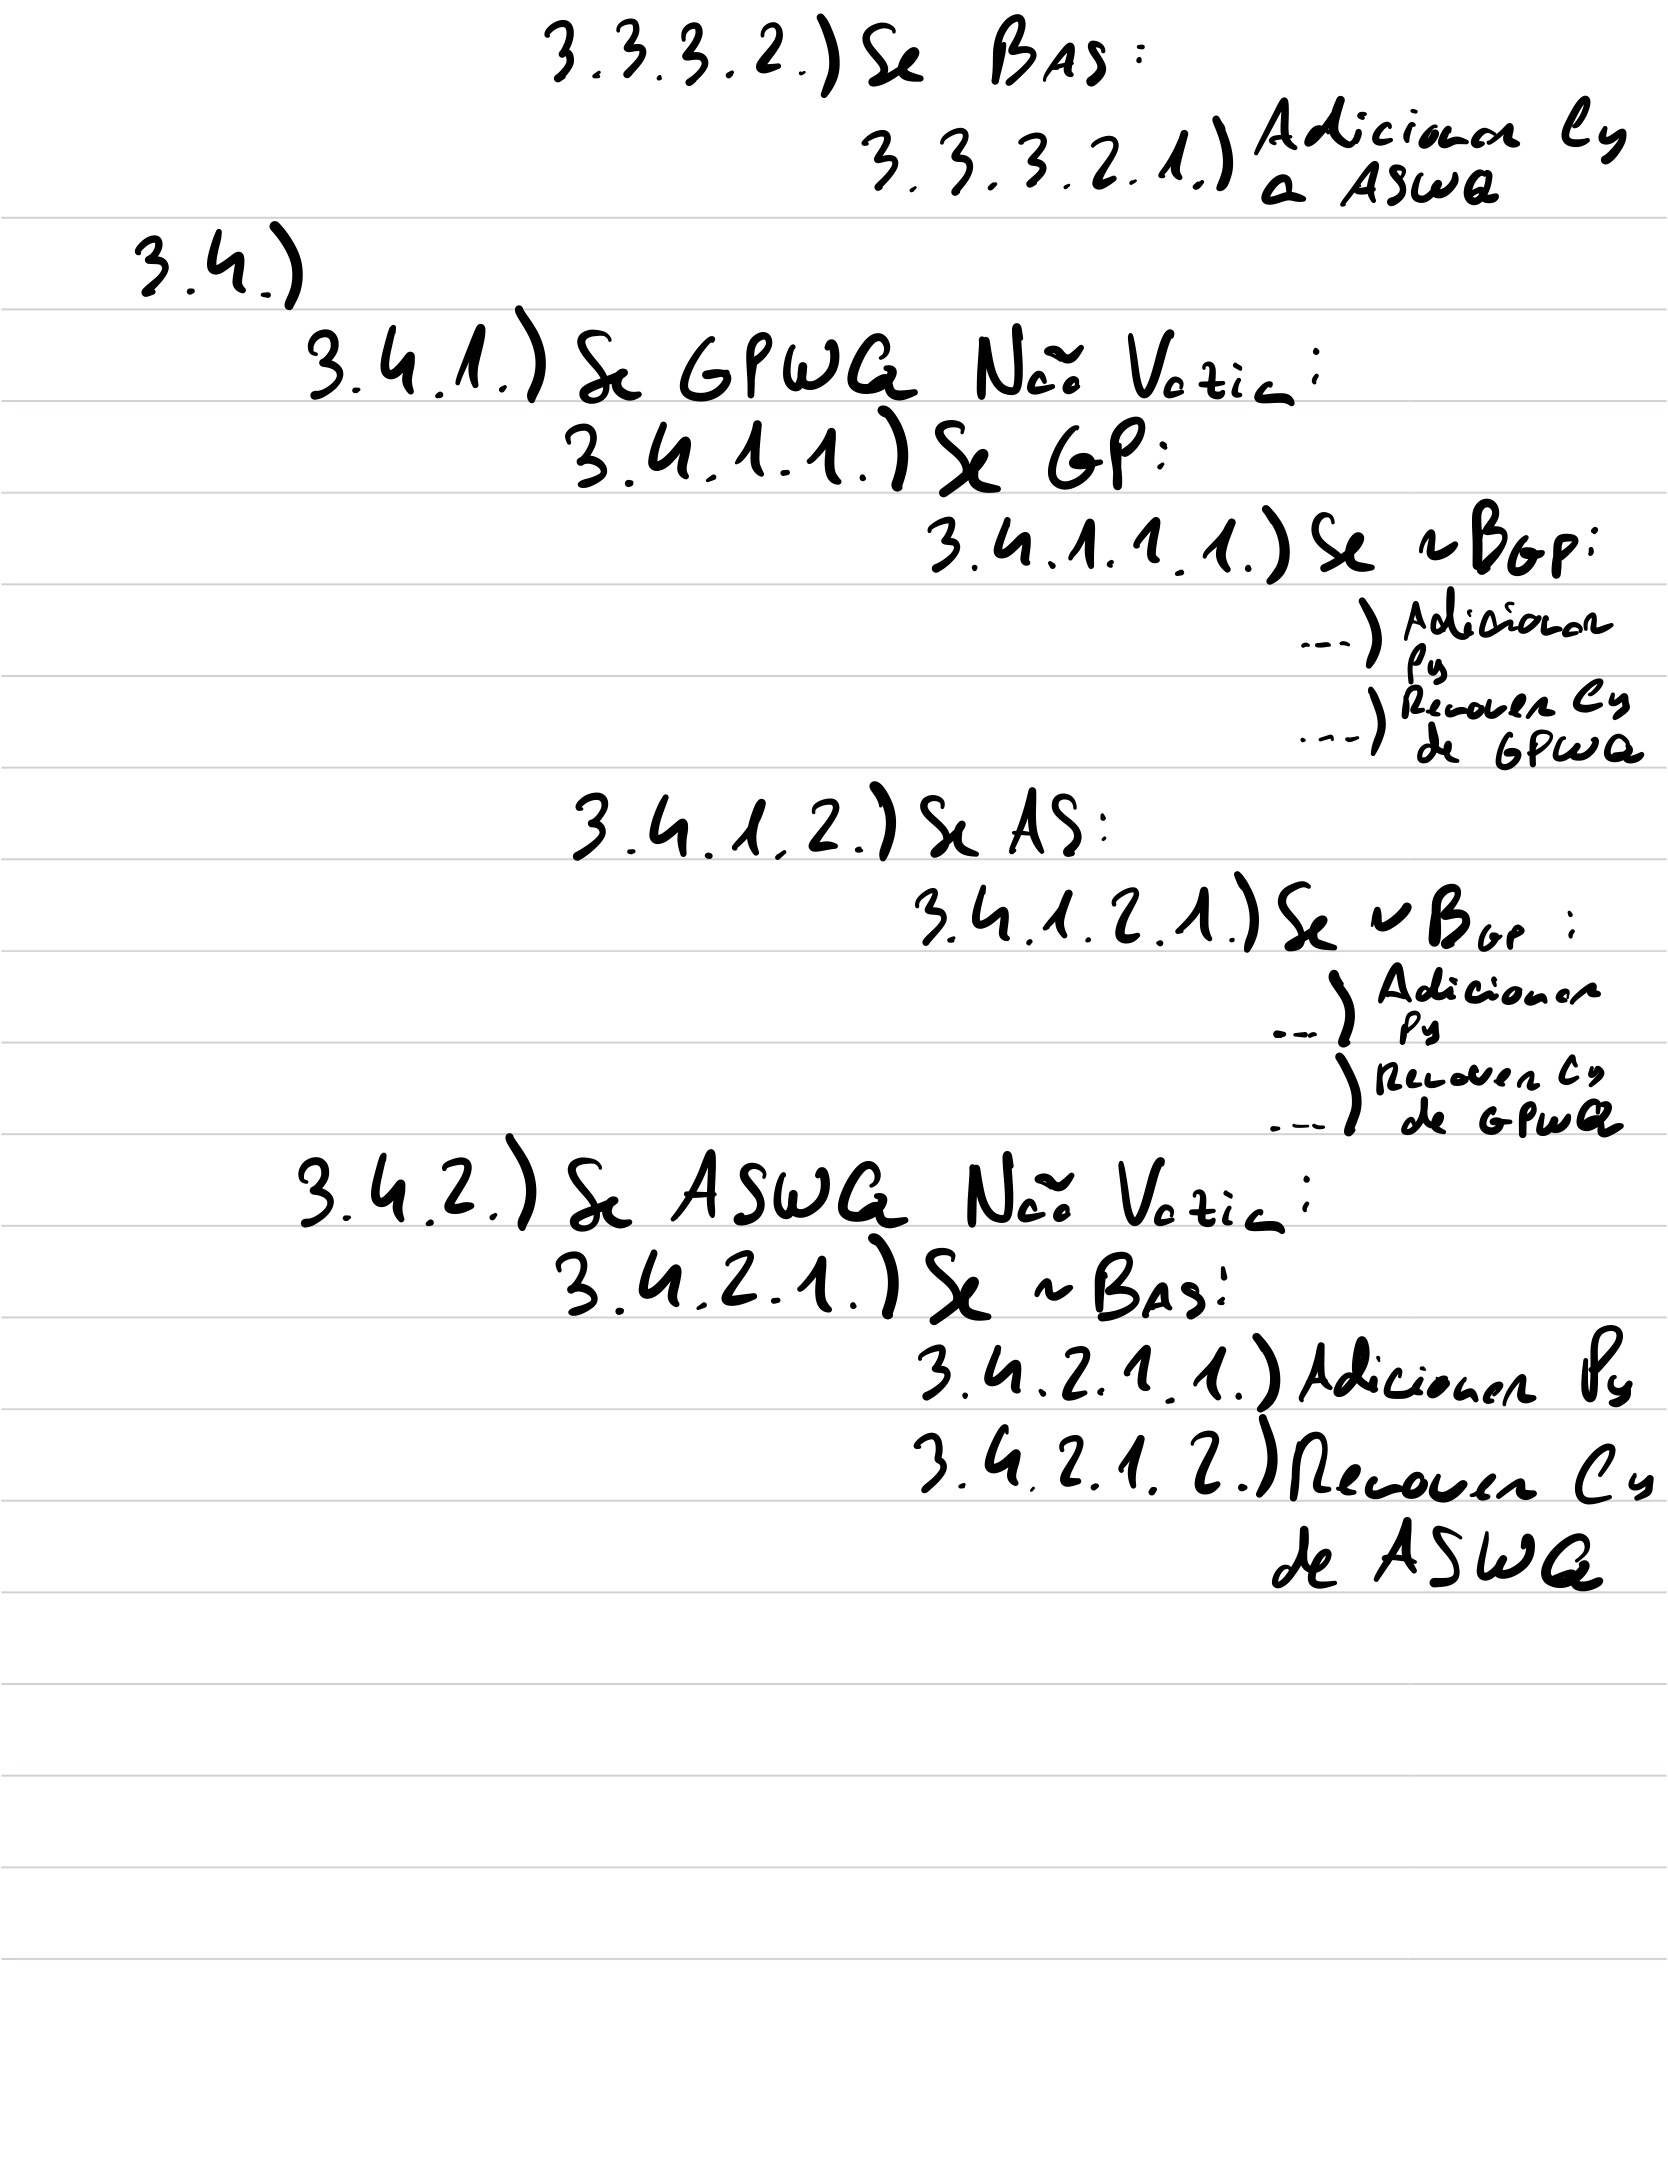 3.3.3.2.) Se BAS:
3.3.3.2.1.) Adicionar Cy
a ASWQ
3.4.)
3.4.1.) Se GPWQ Não Vazia:
3.4.1.1.) Se GP:
3.4.1.1.1.) Se ~BGP:
...) Adicionar
Py
...) Remover Cy
de GPWQ
3.4.1.2.) Se AS:
3.4.1.2.1.) Se ~BGP:
...) Adicionar
Py
...) Remover Cy
de GPWQ
3.4.2.) Se ASWQ Não Vazia:
3.4.2.1.) Se ~BAS:
3.4.2.1.1.) Adicionar Py
3.4.2.1.2.) Remover Cy
de ASWQ